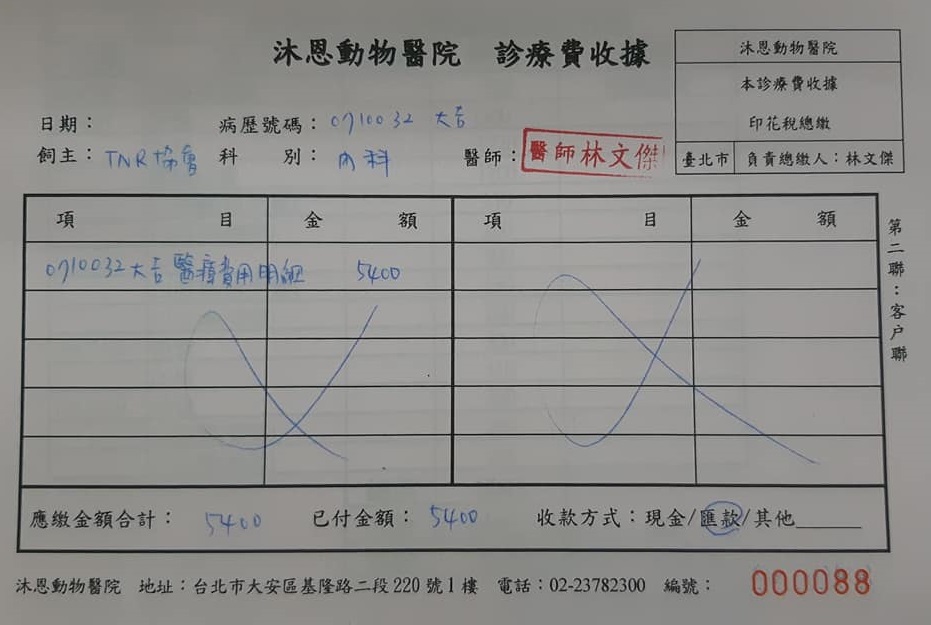 沐恩動物醫院 診療費收據
沐恩動物醫院
本診療費收據
印花稅總繳
臺北市 負責總繳人：林文傑
日期： 病歷號碼：0710032 大吉
飼主：TNR協會 科 別：內科 醫師：醫師林文傑
項 目 金 額 項 目 金 額
0710032大吉 醫療費用明細 5400
應繳金額合計： 5400 已付金額： 5400 收款方式：現金/匯款/其他
第二聯：客戶聯
沐恩動物醫院 地址：台北市大安區基隆路二段220號1樓 電話：02-23782300 編號： 000088